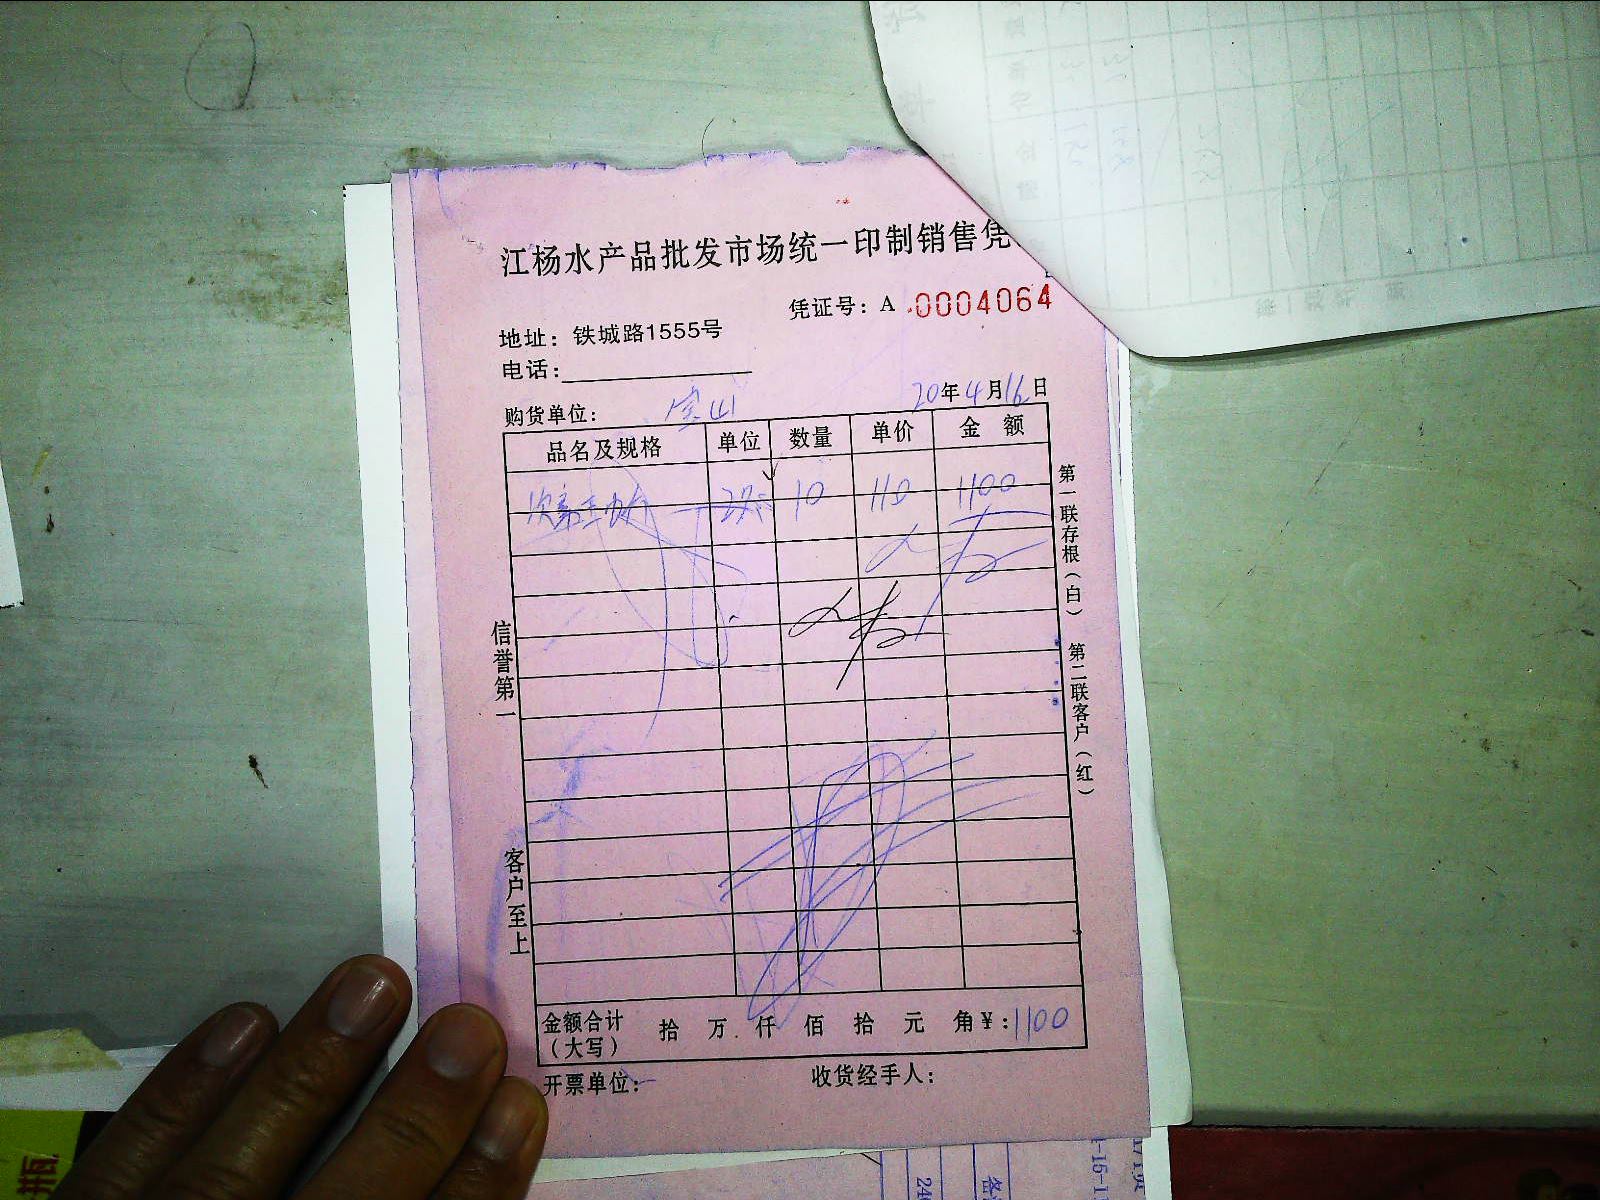 江杨水产品批发市场统一印制销售凭
凭证号：A 0004064
地址：铁城路1555号
电话：
购货单位：宝山
20年4月16日
品名及规格 单位 数量 单价 金 额
10 110 1100
信誉第一
客户至上
第一联存根（白）
第二联客户（红）
金额合计（大写） 拾 万 仟 佰 拾 元 角￥：1100
开票单位：
收货经手人：
瓶